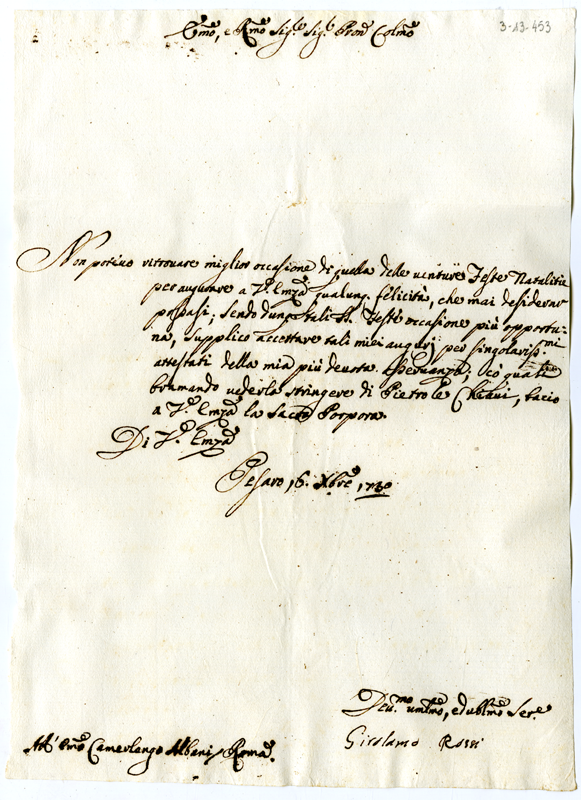 3-13-453
Emo, e Rmo Sig.re Sig.r Pron Colmo
Non potevo ritrovare miglior occasione di quella delle venture Feste Natalitie
per augurare a V.ra Emza qualunq. felicità, che mai desiderar
possasi; sendo dunq. tali Ste Feste occasione più opportu-
na, supplico accettare tali miei augurj per singolariss.mi
attestati della mia più devota Osservanza; có quali
bramando vederla stringere di Pietro le Chiavi, bacio
a V.ra Emza la Sacra Porpora.
Di V.ra Emza
Pesaro 16. Xbre 1740
Dev.mo umilmo, ed ubblmo Ser.e
Girolamo Rossi
All' Emo Camerlengo Albani, Roma.